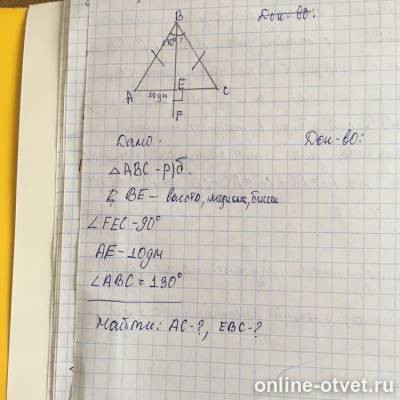 Док-во:
B
130° ?
A 10дм E C
F
Дано: Док-во:
△ABC - р/б.
BE - высота, медиана, биссек
∠FEC - 90°
AE - 10дм
∠ABC = 130°
Найти: AC - ?, EBC - ?
online-otvet.ru